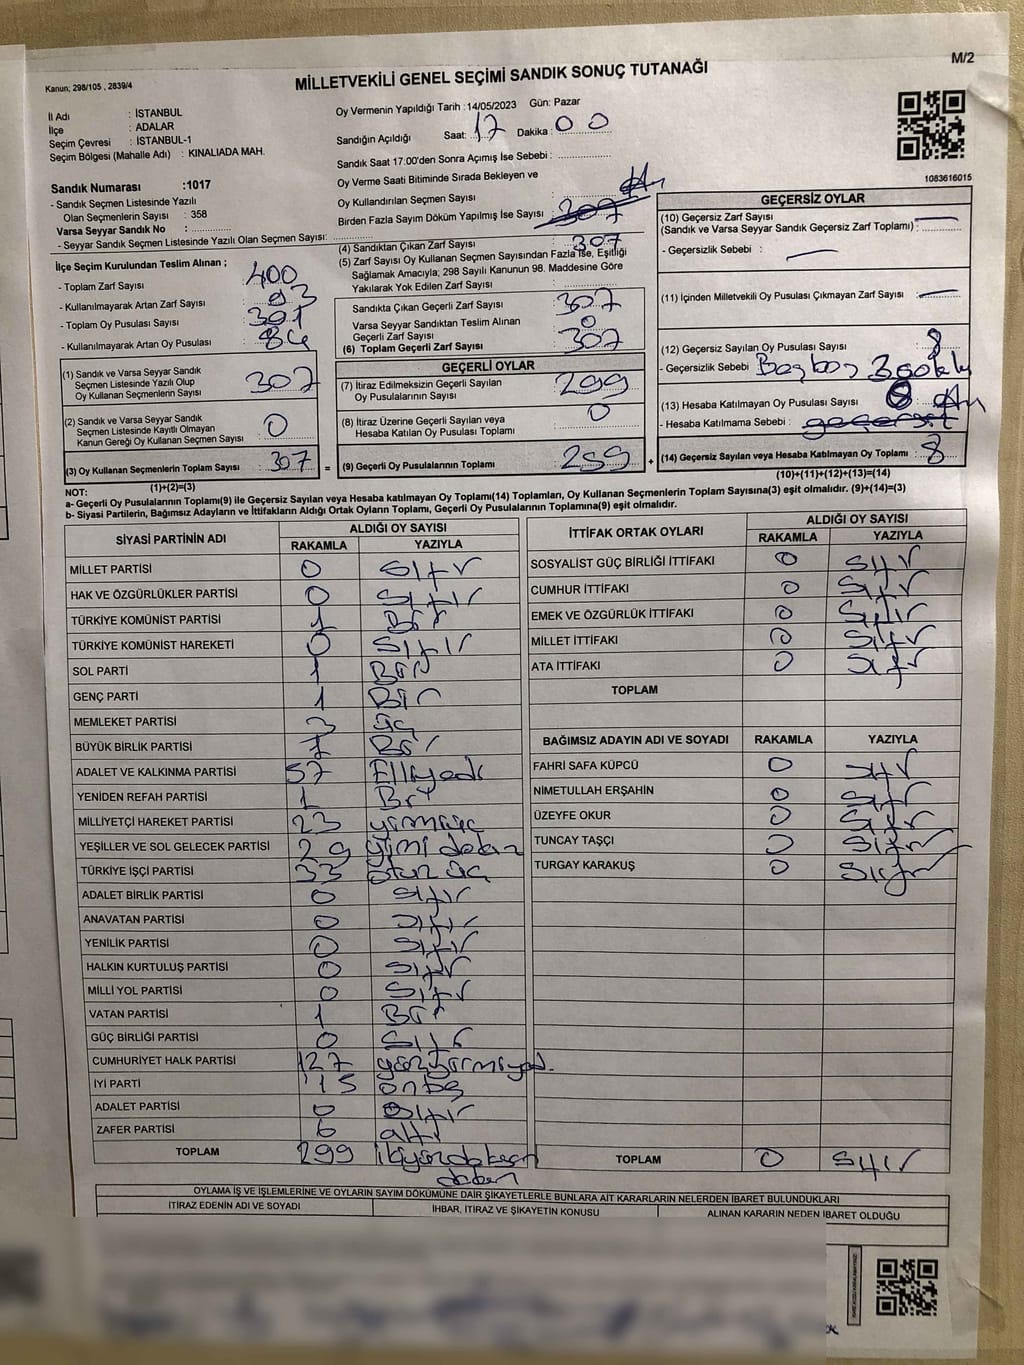 M/2
Kanun; 298/105 , 2839/4
MİLLETVEKİLİ GENEL SEÇİMİ SANDIK SONUÇ TUTANAĞI
İl Adı : İSTANBUL
İlçe : ADALAR
Seçim Çevresi : İSTANBUL-1
Seçim Bölgesi (Mahalle Adı) : KINALIADA MAH.
Oy Vermenin Yapıldığı Tarih :14/05/2023 Gün: Pazar
Sandığın Açıldığı Saat: 17 Dakika : 00
Sandık Saat 17:00'den Sonra Açımış İse Sebebi :
Oy Verme Saati Bitiminde Sırada Bekleyen ve
Oy Kullandırılan Seçmen Sayısı
Birden Fazla Sayım Döküm Yapılmış İse Sayısı 307
1083616015
Sandık Numarası :1017
- Sandık Seçmen Listesinde Yazılı
Olan Seçmenlerin Sayısı : 358
Varsa Seyyar Sandık No :
- Seyyar Sandık Seçmen Listesinde Yazılı Olan Seçmen Sayısı:
İlçe Seçim Kurulundan Teslim Alınan ;
- Toplam Zarf Sayısı 400
- Kullanılmayarak Artan Zarf Sayısı 93
- Toplam Oy Pusulası Sayısı
- Kullanılmayarak Artan Oy Pusulası
(1) Sandık ve Varsa Seyyar Sandık
Seçmen Listesinde Yazılı Olup
Oy Kullanan Seçmenlerin Sayısı 307
(2) Sandık ve Varsa Seyyar Sandık
Seçmen Listesinde Kayıtlı Olmayan
Kanun Gereği Oy Kullanan Seçmen Sayısı 0
(3) Oy Kullanan Seçmenlerin Toplam Sayısı : 307 =
(1)+(2)=(3)
(4) Sandıktan Çıkan Zarf Sayısı 307
(5) Zarf Sayısı Oy Kullanan Seçmen Sayısından Fazla İse, Eşitliği
Sağlamak Amacıyla; 298 Sayılı Kanunun 98. Maddesine Göre
Yakılarak Yok Edilen Zarf Sayısı
Sandıkta Çıkan Geçerli Zarf Sayısı 307
Varsa Seyyar Sandıktan Teslim Alınan
Geçerli Zarf Sayısı 0
(6) Toplam Geçerli Zarf Sayısı 307
GEÇERLİ OYLAR
(7) İtiraz Edilmeksizin Geçerli Sayılan
Oy Pusulalarının Sayısı 299
(8) İtiraz Üzerine Geçerli Sayılan veya
Hesaba Katılan Oy Pusulası Toplamı 0
(9) Geçerli Oy Pusulalarının Toplamı 299 +
GEÇERSİZ OYLAR
(10) Geçersiz Zarf Sayısı —
(Sandık ve Varsa Seyyar Sandık Geçersiz Zarf Toplamı) :
- Geçersizlik Sebebi : —
(11) İçinden Milletvekili Oy Pusulası Çıkmayan Zarf Sayısı —
(12) Geçersiz Sayılan Oy Pusulası Sayısı 8
- Geçersizlik Sebebi
(13) Hesaba Katılmayan Oy Pusulası Sayısı
- Hesaba Katılmama Sebebi : geçersiz
(14) Geçersiz Sayılan veya Hesaba Katılmayan Oy Toplamı : 8
(10)+(11)+(12)+(13)=(14)
NOT:
a- Geçerli Oy Pusulalarının Toplamı(9) ile Geçersiz Sayılan veya Hesaba katılmayan Oy Toplamı(14) Toplamları, Oy Kullanan Seçmenlerin Toplam Sayısına(3) eşit olmalıdır. (9)+(14)=(3)
b- Siyasi Partilerin, Bağımsız Adayların ve İttifakların Aldığı Ortak Oyların Toplamı, Geçerli Oy Pusulalarının Toplamına(9) eşit olmalıdır.
SİYASİ PARTİNİN ADI ALDIĞI OY SAYISI
RAKAMLA YAZIYLA
MİLLET PARTİSİ 0 sıfır
HAK VE ÖZGÜRLÜKLER PARTİSİ 0 sıfır
TÜRKİYE KOMÜNİST PARTİSİ 1 Bir
TÜRKİYE KOMÜNİST HAREKETİ 0 sıfır
SOL PARTİ 1 Bir
GENÇ PARTİ 1 Bir
MEMLEKET PARTİSİ 3 üç
BÜYÜK BİRLİK PARTİSİ 1 Bir
ADALET VE KALKINMA PARTİSİ 57 Elliyedi
YENİDEN REFAH PARTİSİ 1 Bir
MİLLİYETÇİ HAREKET PARTİSİ 23 yirmiüç
YEŞİLLER VE SOL GELECEK PARTİSİ 29 yirmi dokuz
TÜRKİYE İŞÇİ PARTİSİ 33 otuz üç
ADALET BİRLİK PARTİSİ 0 sıfır
ANAVATAN PARTİSİ 0 sıfır
YENİLİK PARTİSİ 0 sıfır
HALKIN KURTULUŞ PARTİSİ 0 sıfır
MİLLİ YOL PARTİSİ 0 sıfır
VATAN PARTİSİ 1 Bir
GÜÇ BİRLİĞİ PARTİSİ 0 sıfır
CUMHURİYET HALK PARTİSİ 127 yüzyirmiyed.
İYİ PARTİ 15 onbeş
ADALET PARTİSİ 0 sıfır
ZAFER PARTİSİ 6 altı
TOPLAM 299 ikiyüzdoksan
dokuz
İTTİFAK ORTAK OYLARI ALDIĞI OY SAYISI
RAKAMLA YAZIYLA
SOSYALİST GÜÇ BİRLİĞİ İTTİFAKI 0 sıfır
CUMHUR İTTİFAKI 0 sıfır
EMEK VE ÖZGÜRLÜK İTTİFAKI 0 sıfır
MİLLET İTTİFAKI 0 sıfır
ATA İTTİFAKI 0 sıfır
TOPLAM
BAĞIMSIZ ADAYIN ADI VE SOYADI RAKAMLA YAZIYLA
FAHRİ SAFA KÜPCÜ 0 sıfır
NİMETULLAH ERŞAHİN 0 sıfır
ÜZEYFE OKUR 0 sıfır
TUNCAY TAŞÇI 0 sıfır
TURGAY KARAKUŞ 0 sıfır
TOPLAM 0 sıfır
OYLAMA İŞ VE İŞLEMLERİNE VE OYLARIN SAYIM DÖKÜMÜNE DAİR ŞİKAYETLERLE BUNLARA AİT KARARLARIN NELERDEN İBARET BULUNDUKLARI
İTİRAZ EDENİN ADI VE SOYADI İHBAR, İTİRAZ VE ŞİKAYETİN KONUSU ALINAN KARARIN NEDEN İBARET OLDUĞU